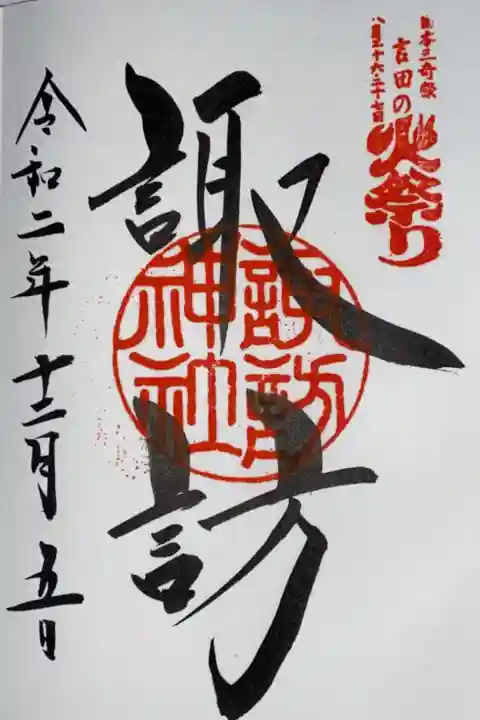 日本三奇祭
吉田の
火祭り
八月二十六・二十七日
諏訪
諏訪
神社
令和二年十二月五日